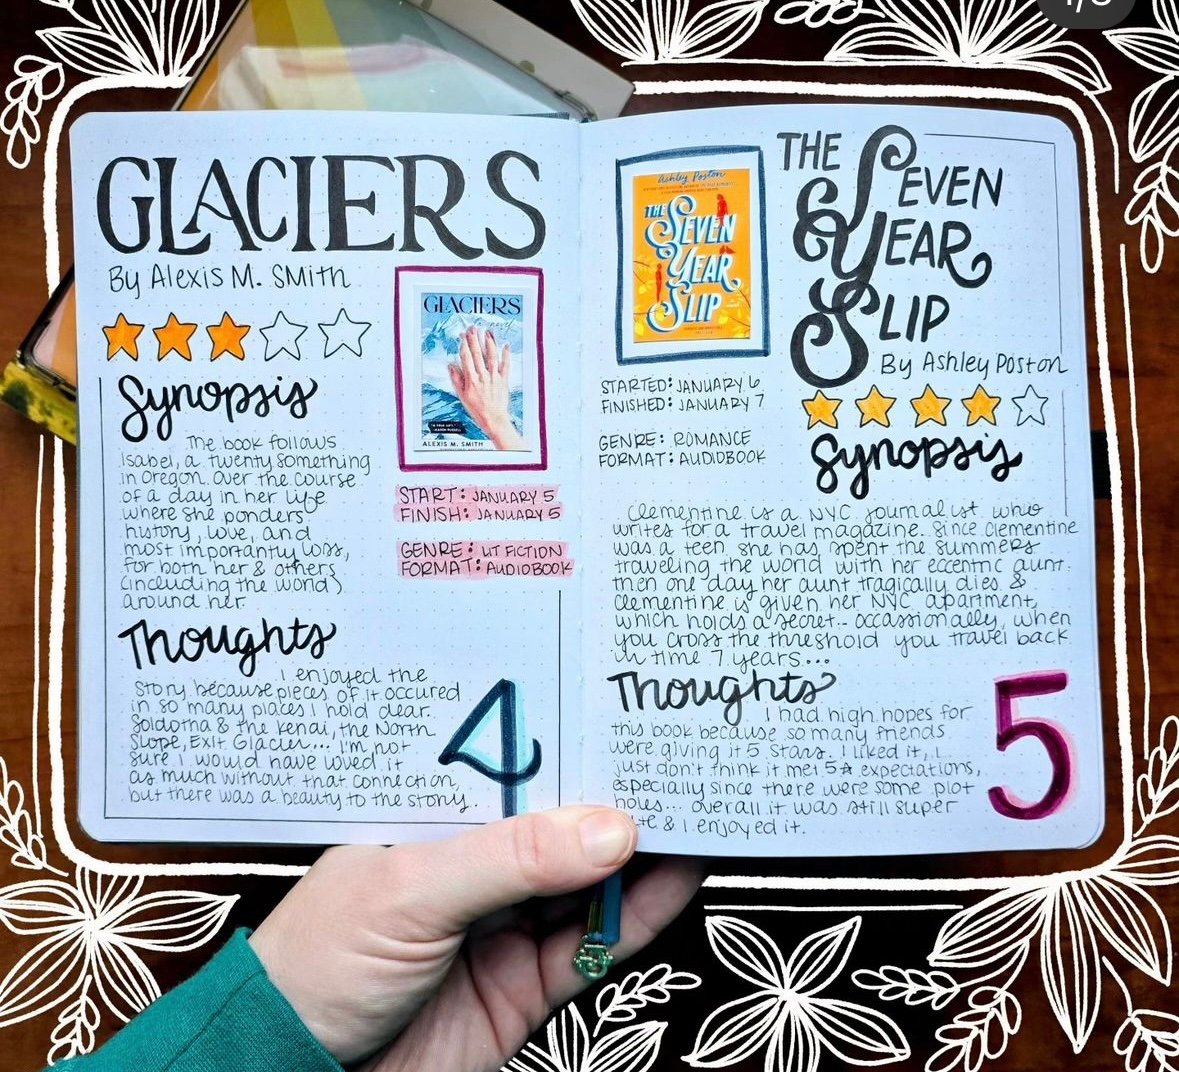 GLACIERS
By Alexis M. Smith
Synopsis
The book follows
Isabel, a twenty something
in Oregon. Over the course
of a day in her life
where she ponders
history, love, and
most importantly loss,
for both her & others
(including the world)
around her.
GLACIERS
a novel
ALEXIS M. SMITH
START: JANUARY 5
FINISH: JANUARY 5
GENRE: LIT FICTION
FORMAT: AUDIOBOOK
Thoughts
I enjoyed the
story because pieces of it occured
in so many places I hold dear.
Soldotna & the Kenai, the North
Slope, Exit Glacier... I'm not
sure I would have loved it
as much without that connection,
but there was a beauty to the story.
4
Ashley Poston
THE
SEVEN
YEAR
SLIP
THE
SEVEN
YEAR
SLIP
By Ashley Poston
STARTED: JANUARY 6
FINISHED: JANUARY 7
GENRE: ROMANCE
FORMAT: AUDIOBOOK
Synopsis
Clementine is a NYC journalist who
writes for a travel magazine. Since Clementine
was a teen she has spent the summers
traveling the world with her eccentric aunt.
Then one day her aunt tragically dies &
Clementine is given her NYC apartment,
which holds a secret... occassionally, when
you cross the threshold you travel back
in time 7 years...
Thoughts
I had high hopes for
this book because so many friends
were giving it 5 stars. I liked it, I
just don't think it met 5☆ expectations,
especially since there were some plot
holes... overall it was still super
& I enjoyed it.
5